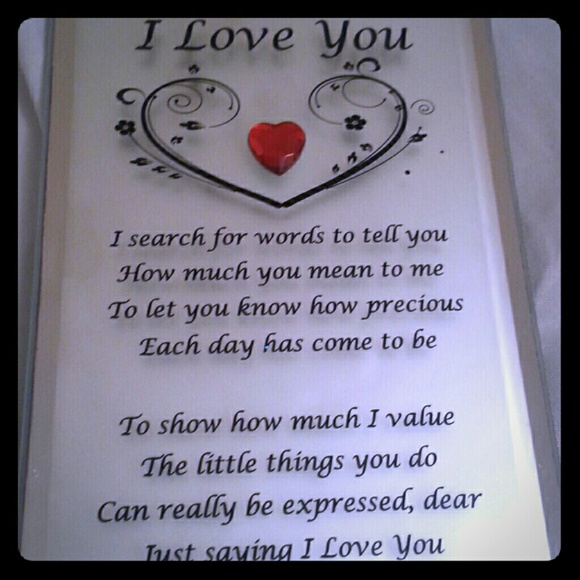 I Love You
I search for words to tell you
How much you mean to me
To let you know how precious
Each day has come to be
To show how much I value
The little things you do
Can really be expressed, dear
Just saying I Love You